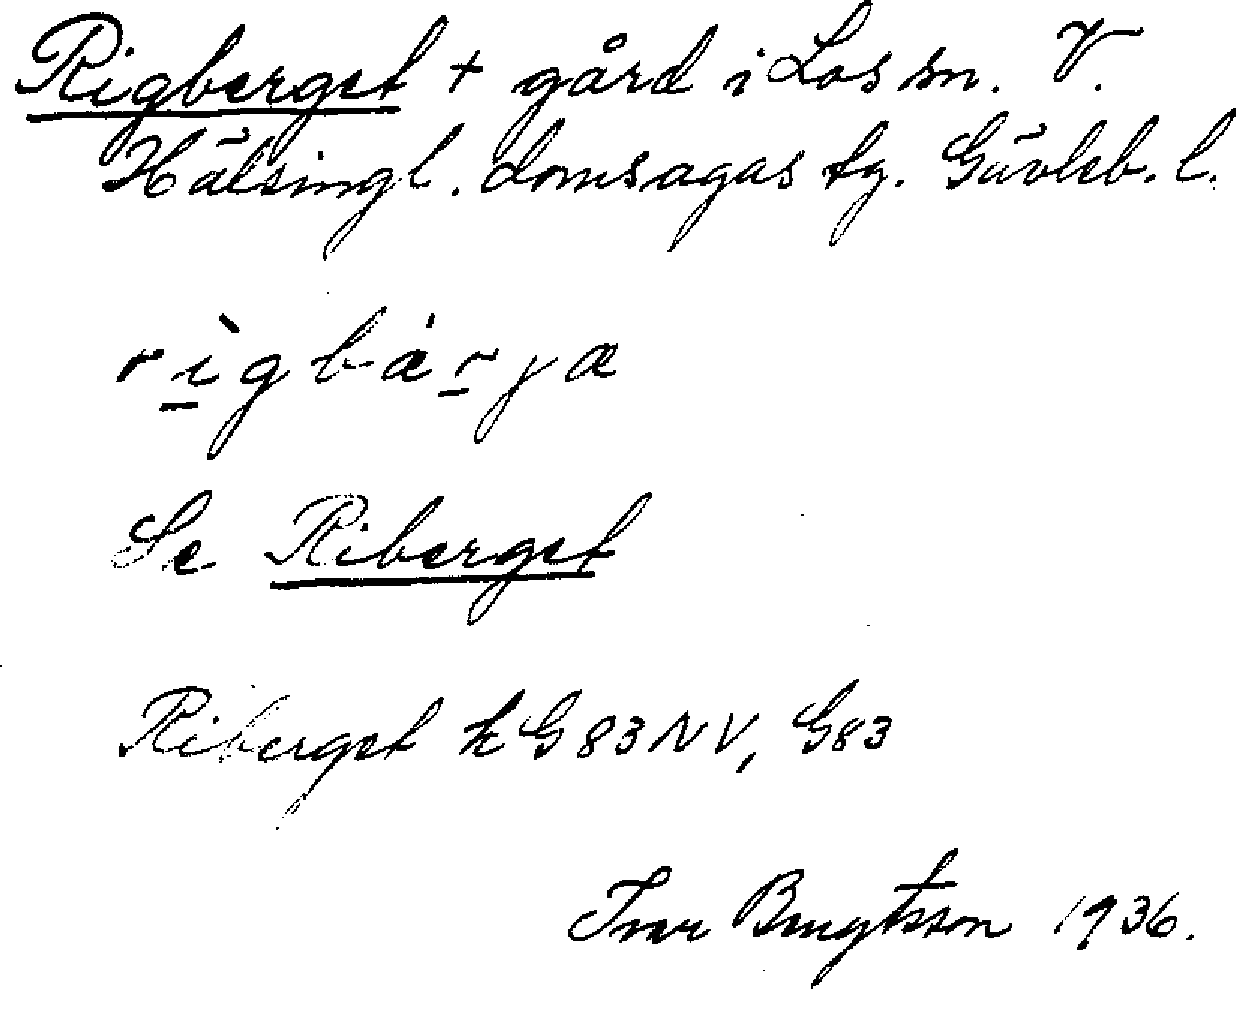 Rigberget + gård i Los sn. V.
Hälsingl. domsagas tg. Gävleb. l.
rìgbárjæ
Se Riberget
Riberget k G83NV, G83
Ivar Bengtsson 1936.